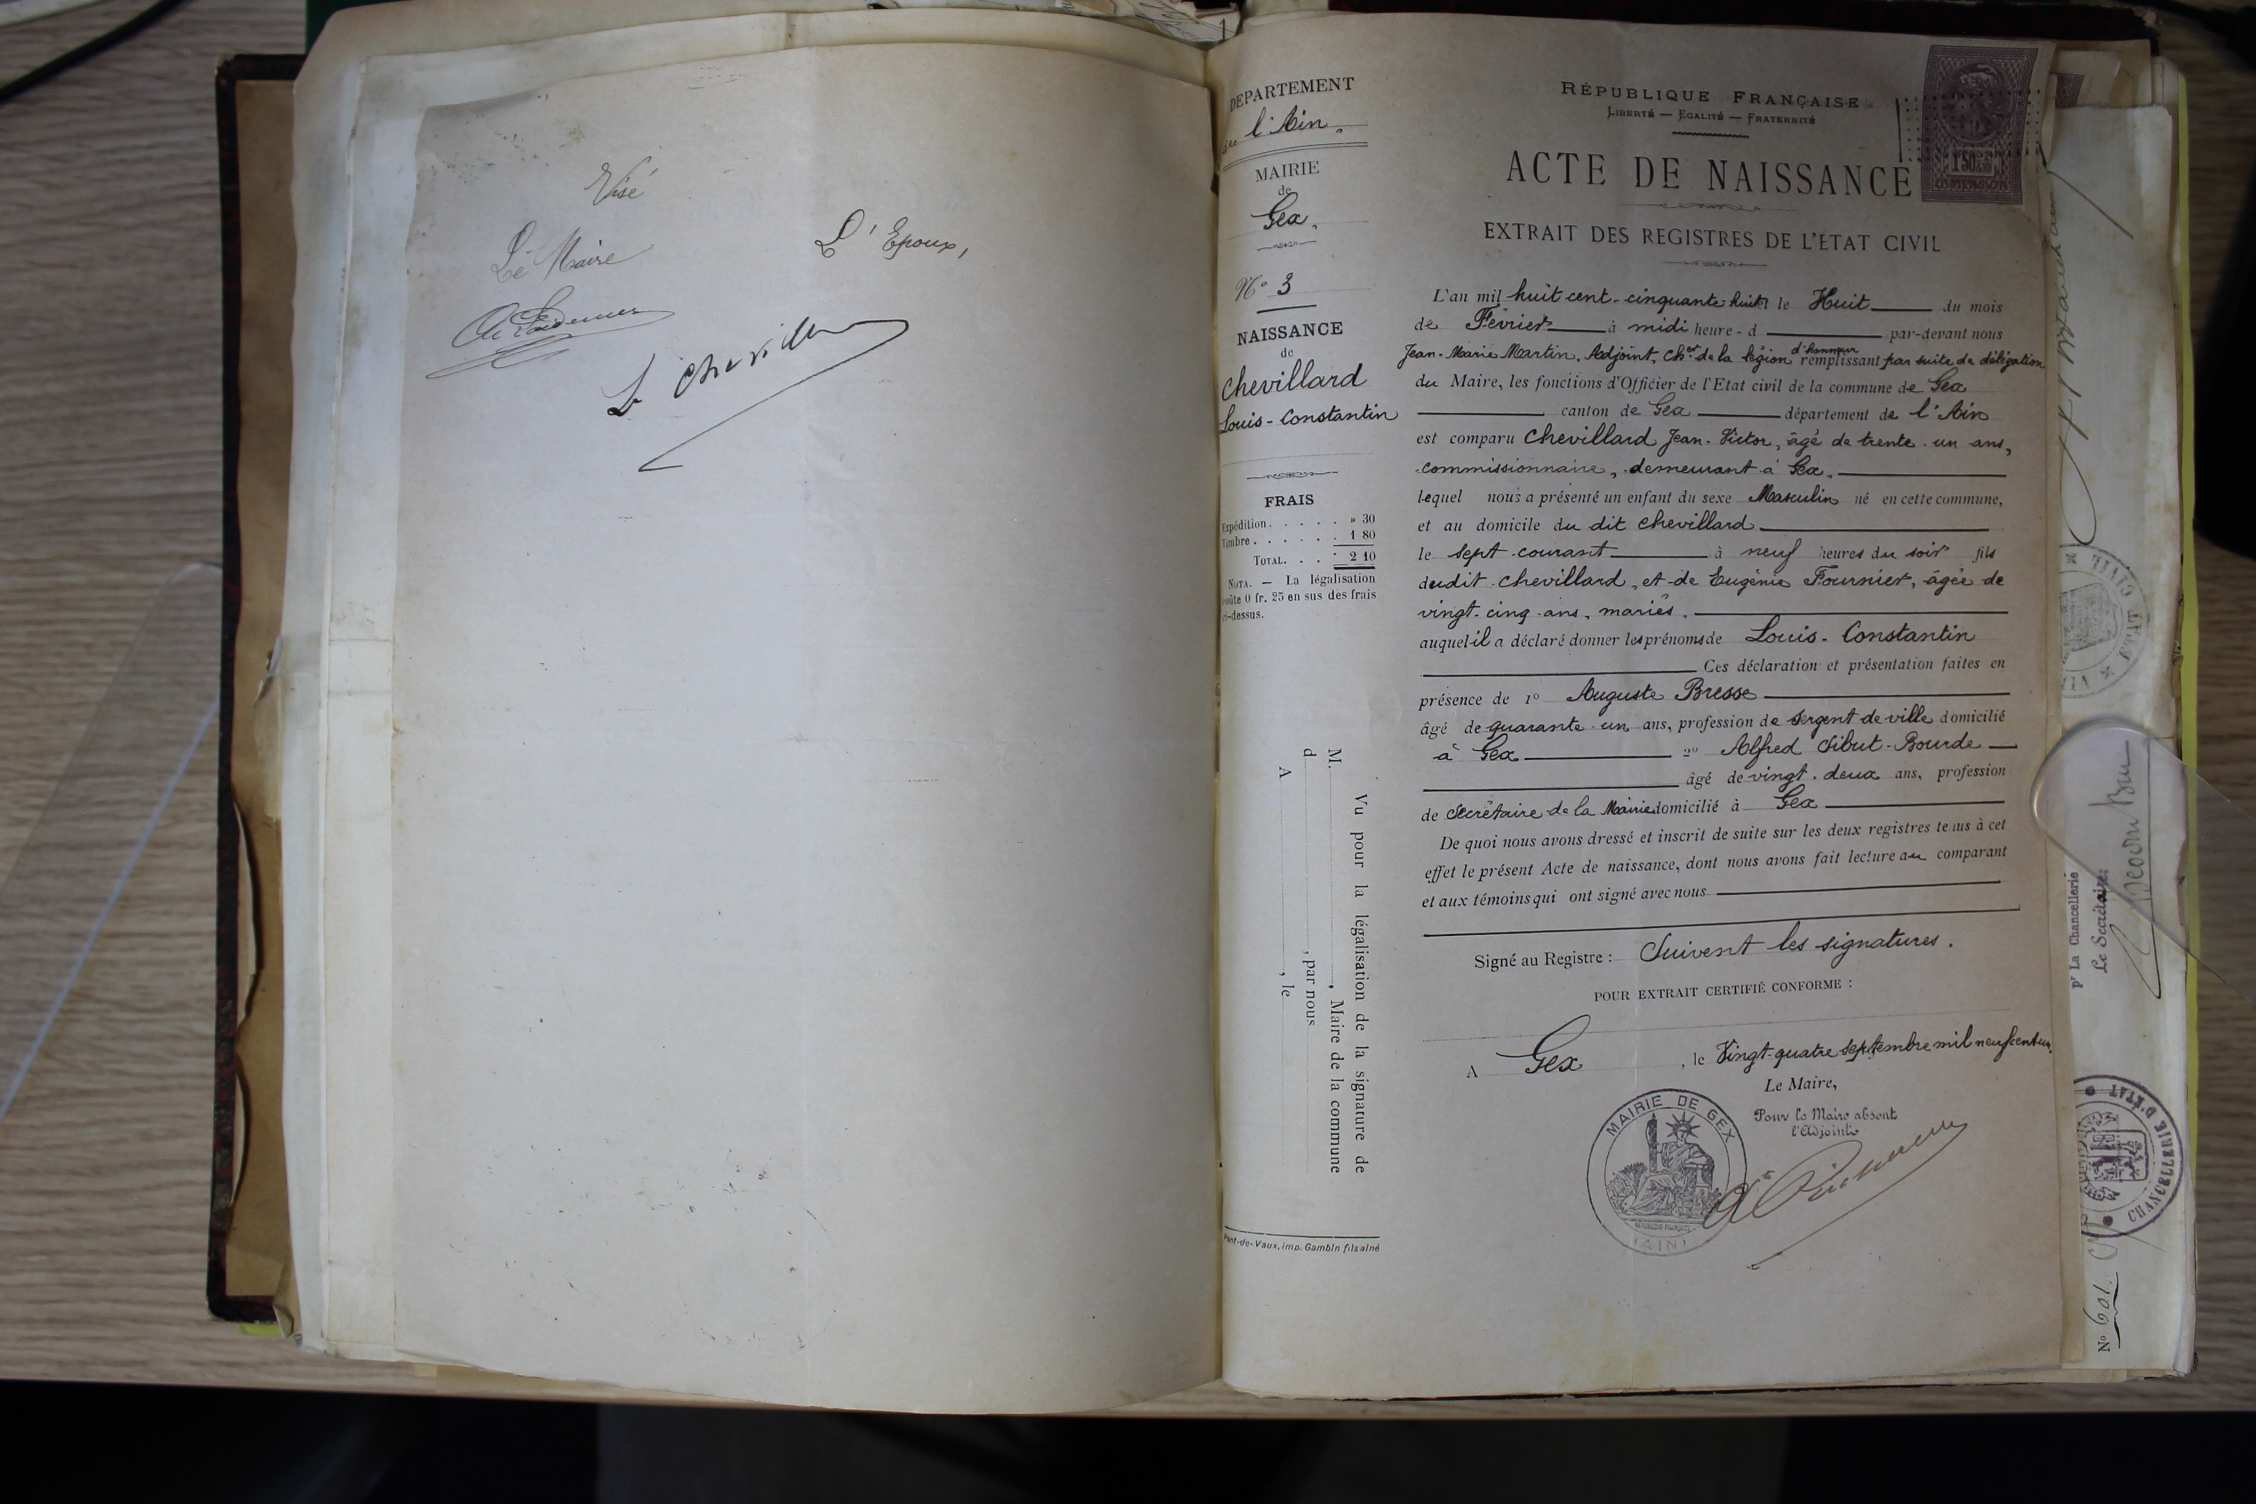 Visé
Le Maire
L'Epoux,
L Chevillard
DÉPARTEMENT
de l'Ain.
MAIRIE
de
Gex.
N° 3
NAISSANCE
de
Chevillard
Louis-Constantin
FRAIS
Expédition . . . . . » 30
Timbre . . . . . . 1 80
TOTAL. . . 2 10
NOTA. — La légalisation
coûte 0 fr. 25 en sus des frais
ci-dessus.
Vu pour la légalisation de la signature de
M. , Maire de la commune
d , par nous
A , le
Pont-de-Vaux, imp. Gambin fils aîné
RÉPUBLIQUE FRANÇAISE
LIBERTÉ — EGALITÉ — FRATERNITÉ
ACTE DE NAISSANCE
EXTRAIT DES REGISTRES DE L'ETAT CIVIL
L'an mil huit cent-cinquante huit le Huit du mois
de Février à midi heure-d par-devant nous
Jean-Marie Martin, Adjoint, Cher de la légion d'honneur remplissant par suite de délégation
du Maire, les fonctions d'Officier de l'Etat civil de la commune de Gex
canton de Gex département de l'Ain
est comparu Chevillard Jean-Victor, âgé de trente-un ans,
commissionnaire, demeurant à Gex.
lequel nous a présenté un enfant du sexe Masculin né en cette commune,
et au domicile du dit Chevillard
le sept courant à neuf heures du soir fils
dudit Chevillard, et de Eugénie Fournier, âgée de
vingt-cinq ans, mariés.
auquel il a déclaré donner les prénoms de Louis-Constantin
Ces déclaration et présentation faites en
présence de 1° Auguste Bresse
âgé de quarante-un ans, profession de sergent de ville domicilié
à Gex 2° Alfred Sibut-Bourde
âgé de vingt-deux ans, profession
de Secrétaire de la Mairie domicilié à Gex
De quoi nous avons dressé et inscrit de suite sur les deux registres tenus à cet
effet le présent Acte de naissance, dont nous avons fait lecture au comparant
et aux témoins qui ont signé avec nous
Signé au Registre : Suivent les signatures.
POUR EXTRAIT CERTIFIÉ CONFORME :
A Gex, le Vingt-quatre septembre mil neuf cent un.
Le Maire,
Pour le Maire absent
l'Adjoint
MAIRIE DE GEX
(AIN)
1
1F50
pr La Chancellerie
Le Secrétaire
CHANCELLERIE D'ETAT
ETAT CIVIL
N° 601.